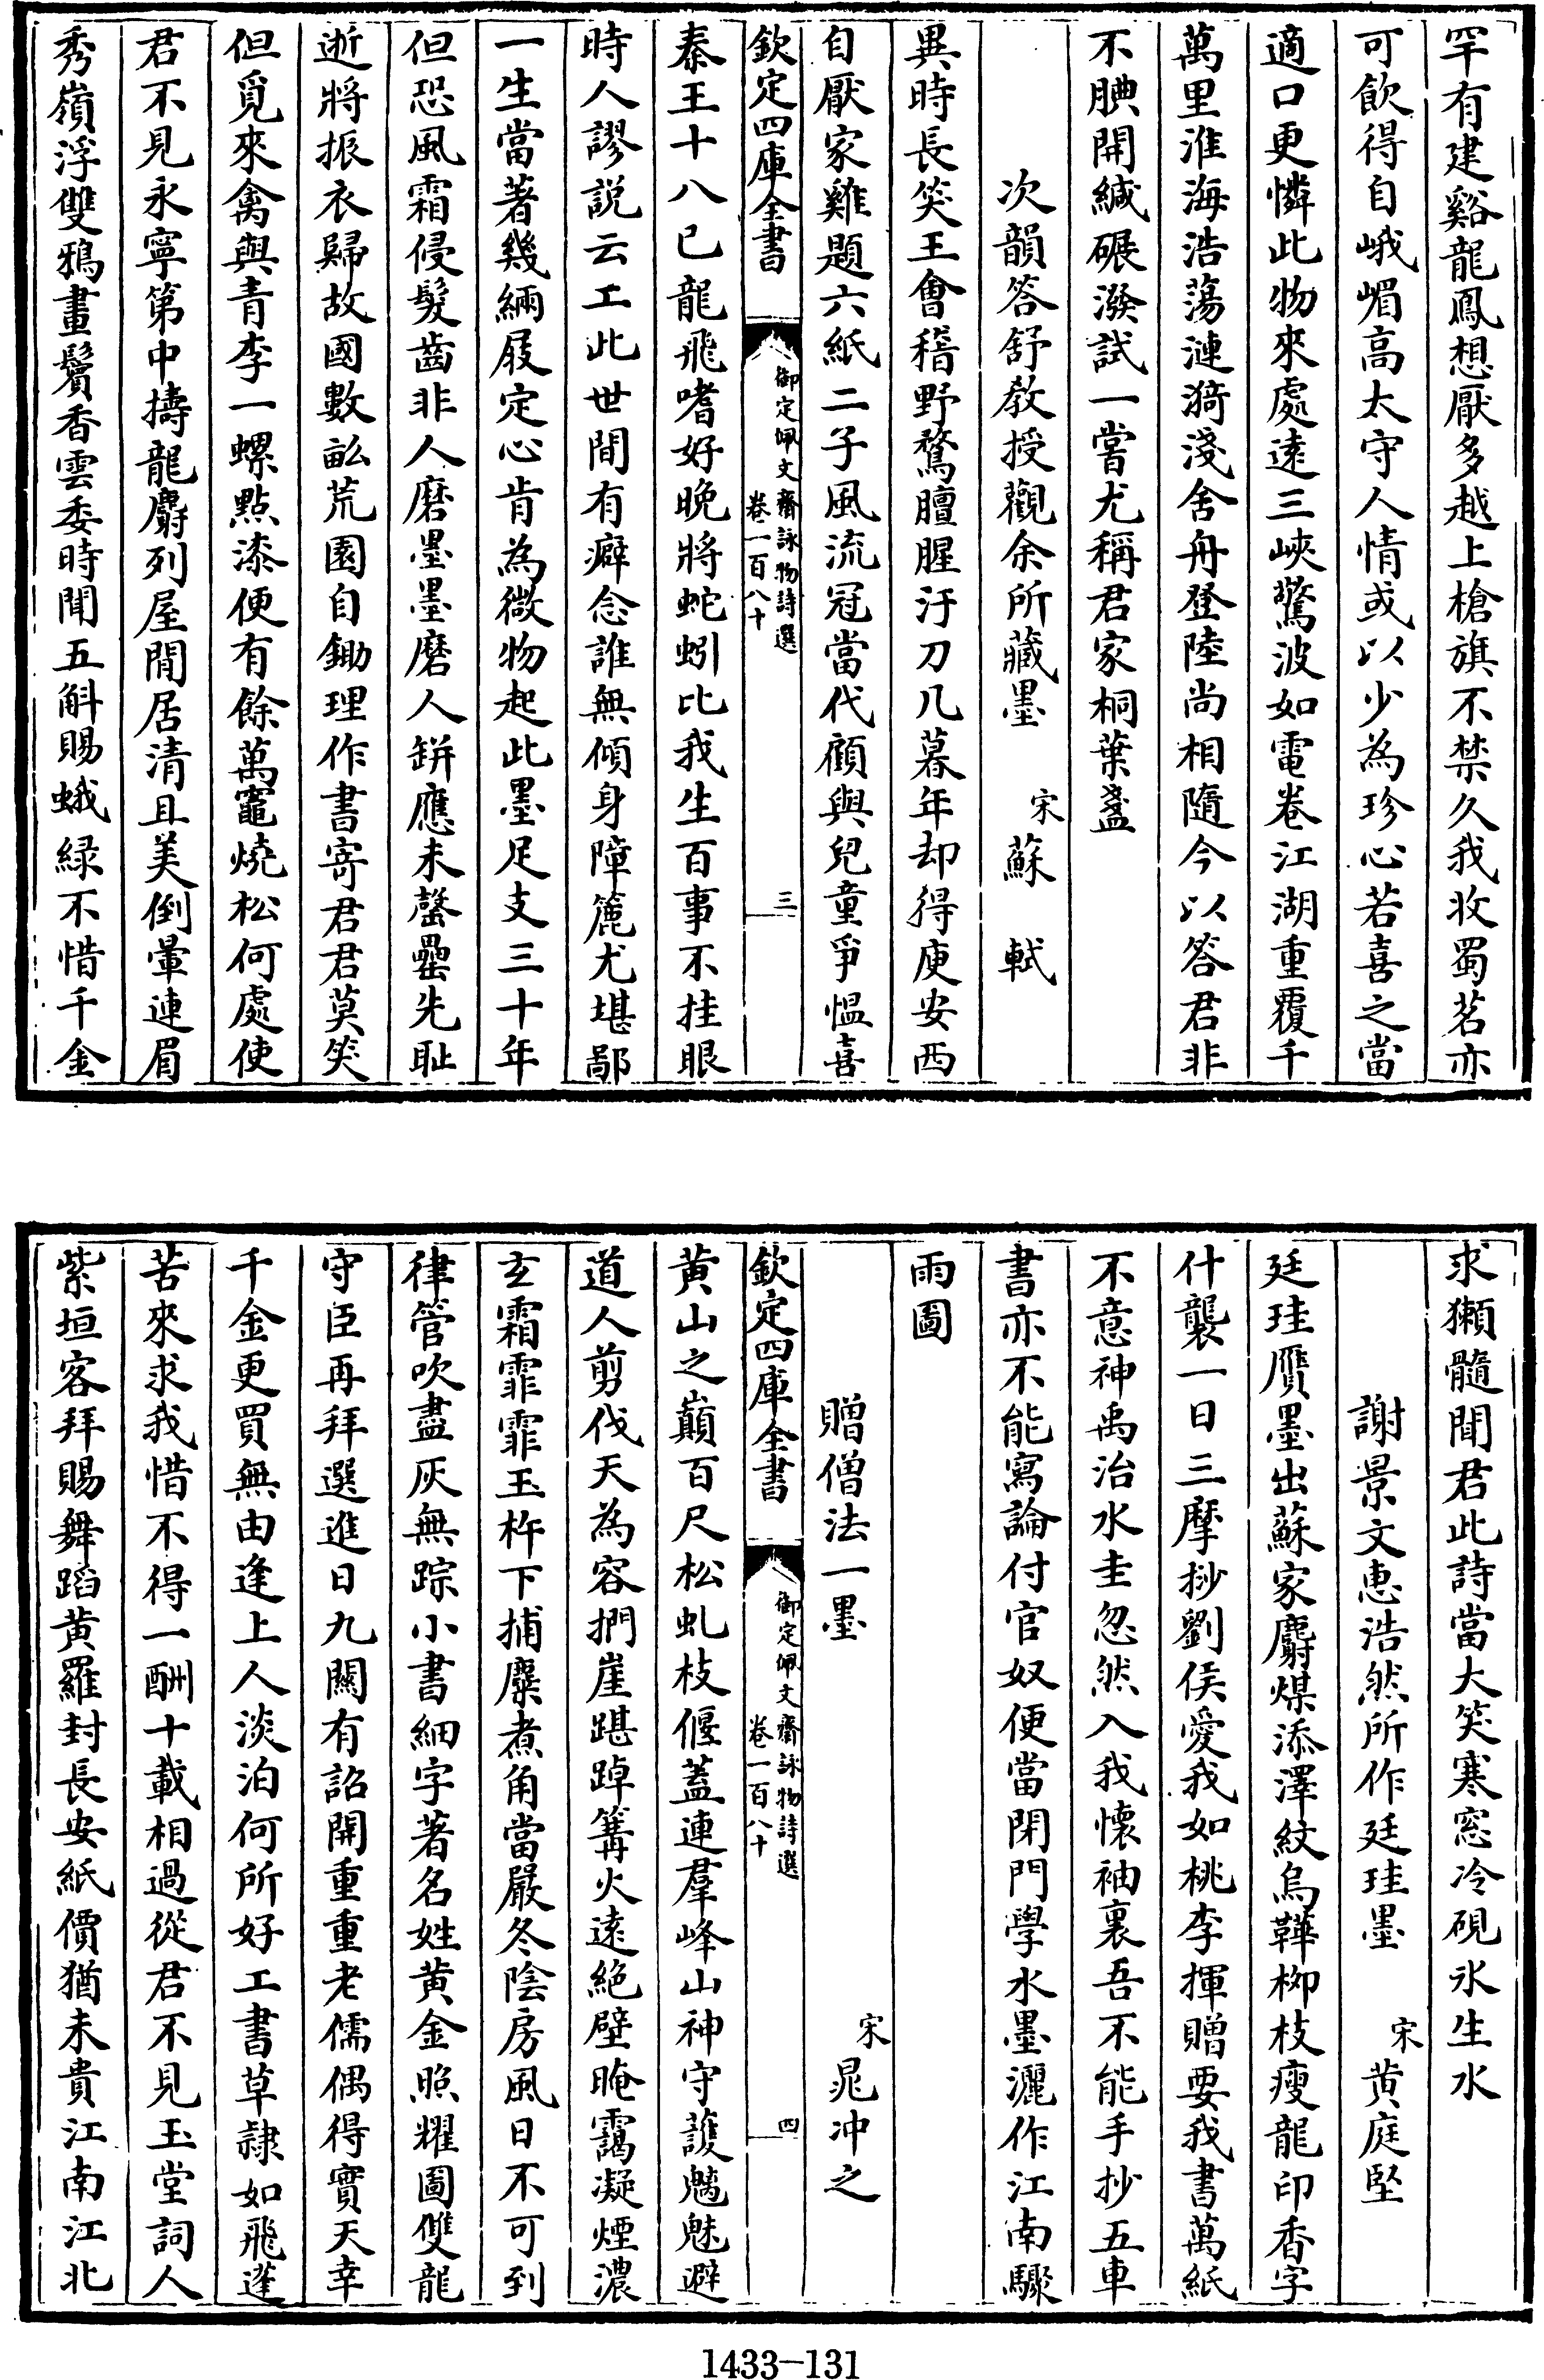 罕有建谿龍鳳想厭多越上槍旗不禁久我收蜀茗亦
可飲得自峨嵋高太守人情或以少為珍心若喜之當
適口更憐此物來處遠三峽驚波如電卷江湖重覆千
萬里淮海浩蕩漣漪淺舍舟登陸尚相隨今以答君非
不腆開緘碾潑試一嘗尤稱君家桐葉盞
次韻答舒教授觀余所藏墨 宋 蘇軾
異時長笑王會稽野鶩膻腥汙刀几暮年却得庾安西
自厭家雞題六紙二子風流冠當代顧與兒童爭慍喜
欽定四庫全書 御定佩文齋詠物詩選 卷一百八十 三
秦王十八已龍飛嗜好晚將蛇蚓比我生百事不挂眼
時人謬説云工此世間有癖念誰無傾身障簏尤堪鄙
一生當著幾緉屐定心肯為微物起此墨足支三十年
但恐風霜侵髮齒非人磨墨墨磨人缾應未罄罍先恥
逝將振衣歸故國數畝荒園自鋤理作書寄君君莫笑
但覓來禽與青李一螺點漆便有餘萬竈燒松何處使
君不見永寧第中擣龍麝列屋閒居清且美倒暈連眉
秀嶺浮雙鴉畫鬢香雲委時聞五斛賜蛾緑不惜千金
求獺髓聞君此詩當大笑寒窓冷硯氷生水
謝景文惠浩然所作廷珪墨 宋 黄庭堅
廷珪贗墨出蘇家麝煤添澤紋烏鞾柳枝瘦龍印香字
什襲一日三摩挱劉侯愛我如桃李揮贈要我書萬紙
不意神禹治水圭忽然入我懷袖裏吾不能手抄五車
書亦不能寫論付官奴便當閉門學水墨灑作江南驟
雨圖
贈僧法一墨 宋 晁冲之
欽定四庫全書 御定佩文齋詠物詩選 卷一百八十 四
黄山之巔百尺松虬枝偃蓋連羣峰山神守䕶魑魅避
道人剪伐天為容捫崖踸踔篝火遠絶壁晻靄凝煙濃
玄霜霏霏玉杵下捕麋煮角當嚴冬陰房風日不可到
律管吹盡灰無踪小書細字著名姓黄金照耀圖雙龍
守臣再拜選進日九關有詔開重重老儒偶得實天幸
千金更買無由逢上人淡泊何所好工書草隷如飛蓬
苦來求我惜不得一酬十載相過從君不見玉堂詞人
紫垣客拜賜舞蹈黄羅封長安紙價猶未貴江南江北
1433-131